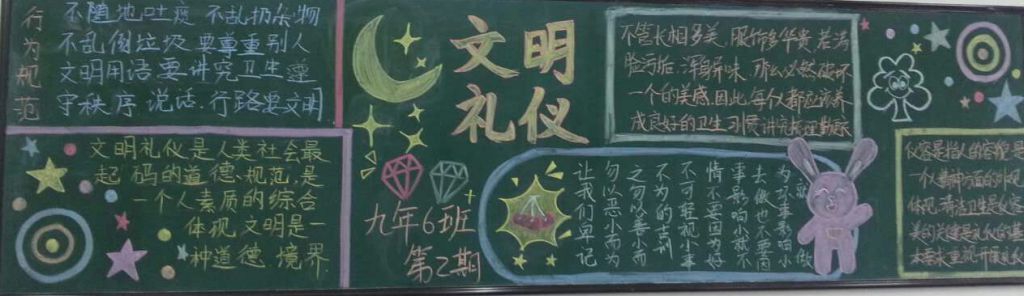 行为规范
不随地吐痰 不乱扔杂物
不乱倒垃圾 要尊重别人
文明用语要讲究卫生遵
守秩序说话.行路要文明
文明礼仪是人类社会最
起码的道德规范,是
一个人素质的综合
体现,文明是一
种道德境界
文明
礼仪
九年6班
第乙期
不管长相多美,服饰多华贵,若满
脸污垢,浑身异味,那么必然破坏
一个的美感,因此,每个人都应该养
成良好的卫生习惯
让我们牢记
勿以恶小而为
之勿以善小而
不为的古训
不可轻视小事
情不要因为好
事影响小就不
去做也不要因
仪容是指人的容貌,是
一个人精神面的外观
体现,清洁卫生是仪容